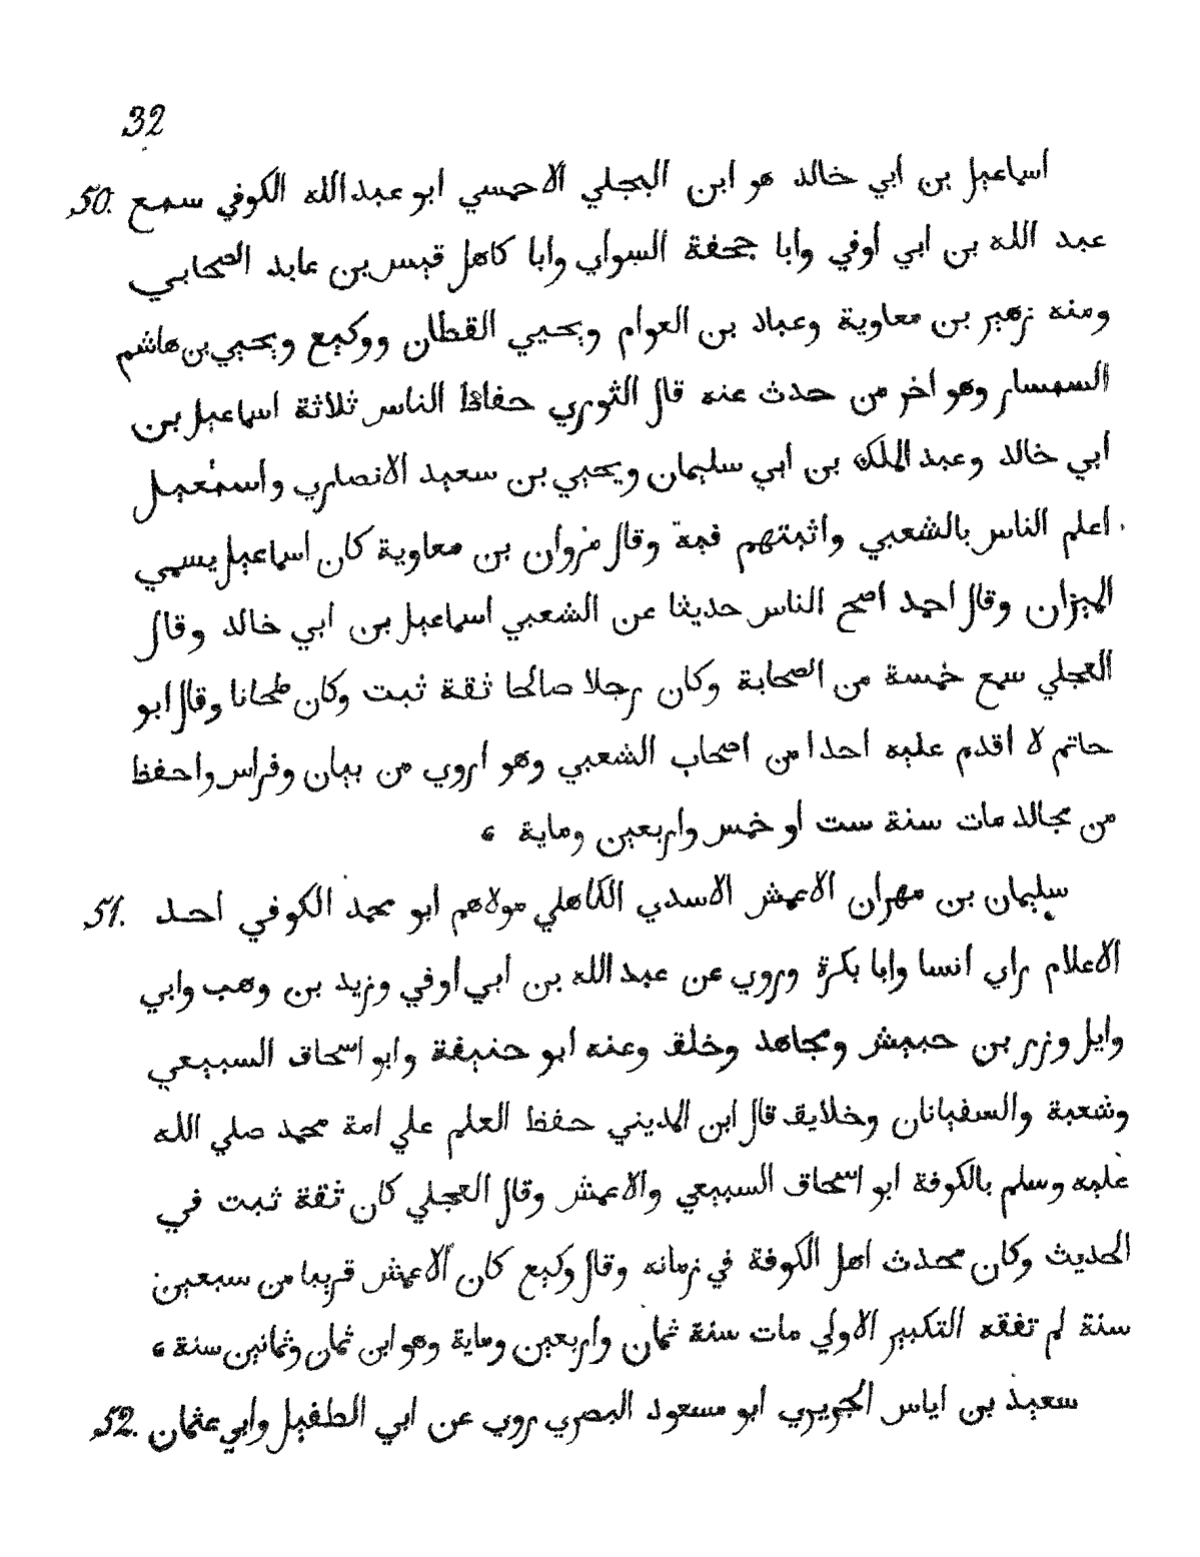 32
50. اسماعيل بن ابي خالد هو ابن البجلي الاحمسي ابو عبد الله الكوفي سمع
عبد الله بن ابي اوفي وابا جحفة السواي وابا كاهل قيس بن عابد الصحابي
ومنه زهير بن معاوية وعباد بن العوام ويحيي القطان ووكيع ويحيي بن هاشم
السمسار وهو اخر من حدث عنه قال الثوري حفاظ الناس ثلاثة اسماعيل بن
ابي خالد وعبد الملك بن ابي سليمان ويحيي بن سعيد الانصاري واسمعيل
اعلم الناس بالشعبي واثبتهم فيه وقال مروان بن معاوية كان اسماعيل يسمي
الميزان وقال احمد اصح الناس حديثا عن الشعبي اسماعيل بن ابي خالد وقال
العجلي سمع خمسة من الصحابة وكان رجلا صالحا ثقة ثبت وكان طحانا وقال ابو
حاتم لا اقدم عليه احدا من اصحاب الشعبي وهو اروي من بيان وفراس واحفظ
من مجالد مات سنة ست او خمس واربعين وماية ء
51. سليمان بن مهران الاعمش الاسدي الكاهلي مولاهم ابو محمد الكوفي احد
الاعلام راي انسا وابا بكرة وروي عن عبد الله بن ابي اوفي وزيد بن وهب وابي
وايل وزر بن حبيش ومجاهد وخلق وعنه ابو حنيفة وابو اسحاق السبيعي
وشعبة والسفيانان وخلايق قال ابن المديني حفظ العلم علي امة محمد صلي الله
عليه وسلم بالكوفة ابو اسحاق السبيعي والاعمش وقال العجلي كان ثقة ثبت في
الحديث وكان محدث اهل الكوفة في زمانه وقال وكيع كان الاعمش قريبا من سبعين
سنة لم تفقه التكبير الاولي مات سنة ثمان واربعين وماية وهو ابن ثمان وثمانين سنة ء
52. سعيد بن اياس الجريري ابو مسعود البصري روي عن ابي الطفيل وابي عثمان